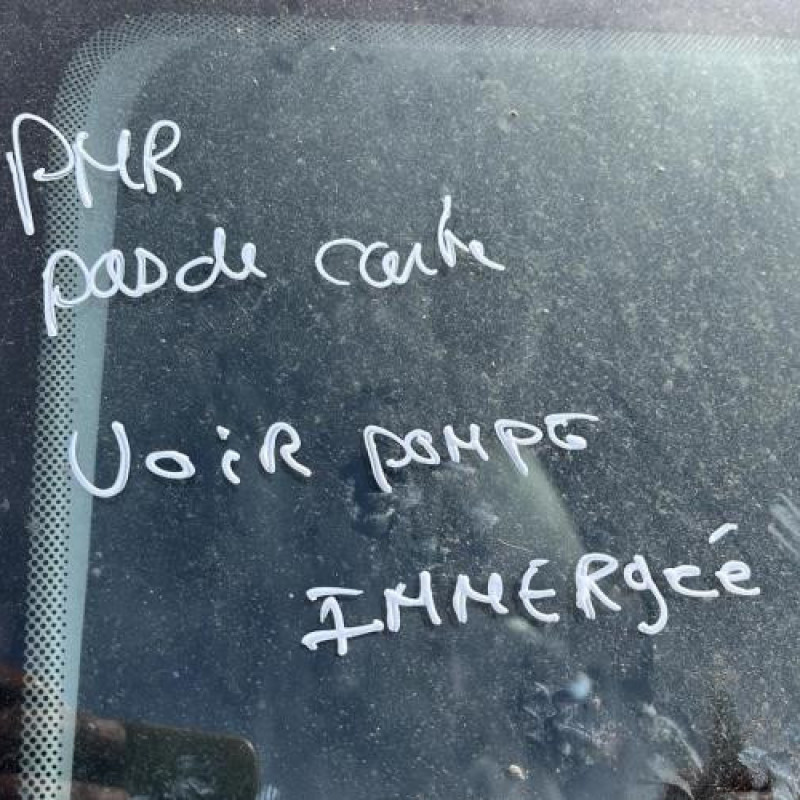 PMR
pas de carte
VOIR POMPE
IMMERgéé